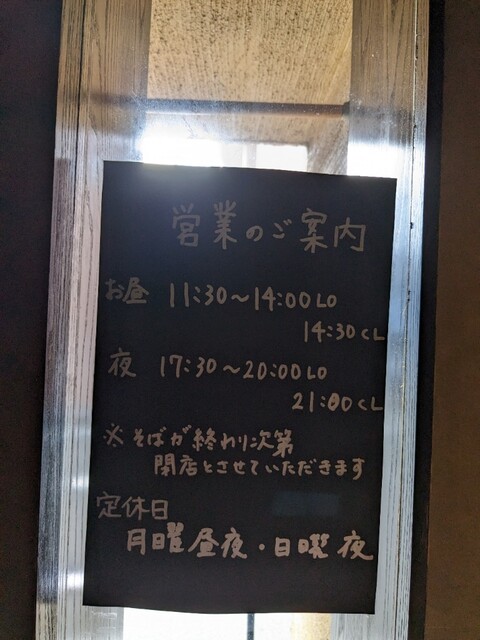 営業のご案内
お昼 11:30～14:00LO
14:30CL
夜 17:30～20:00LO
21:00CL
※そばが終わり次第
閉店とさせていただきます
定休日
月曜昼夜・日曜夜